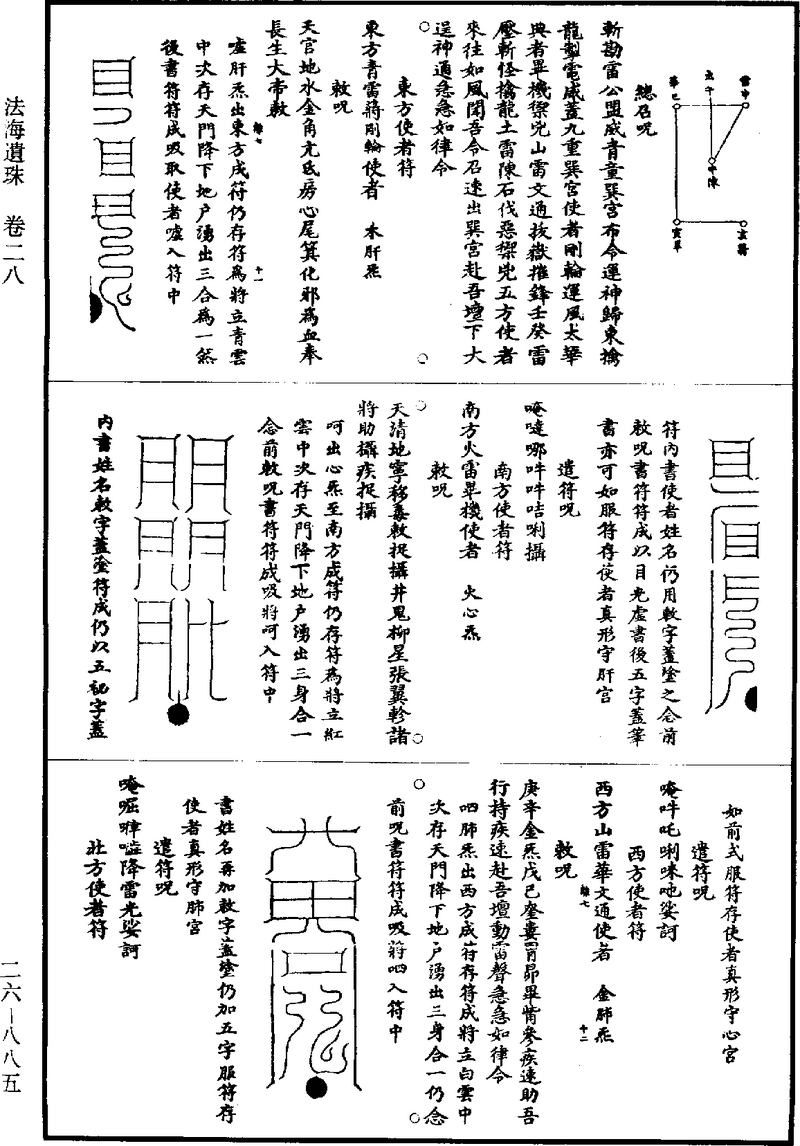 法海遺珠 卷二八
二六—八八五
雷中
太乙
中陳
華巳
寅單
玄蔣
總召呪
斬勘雷公盟威青童巽宮布令運神歸東擒
龍掣電威蓋九重巽宮使者剛輪運風太華
典者畢機禦兇山雷文通拔嶽摧鋒壬癸雷
壓斬怪擒龍土雷陳石伐惡禦兇五方使者
來往如風聞吾令召速出巽宮赴吾壇下大
逞神通急急如律令
東方使者符
東方青雷蔣剛輪使者 木肝炁
敕呪
天官地水金角亢氐房心尾箕化邪為血奉
長生大帝敕
噓肝炁出東方成符仍存符為將立青雲
中次存天門降下地戶湧出三合為一然
後書符符成吸取使者噓入符中
雖七
十一
符內書使者姓名仍用敕字蓋塗之念前
敕呪書符符成以目光虛書後五字蓋筆
書亦可如服符存使者真形守肝宮
遣符呪
唵噠哪吽吽咭唎攝
南方使者符
南方火雷畢機使者 火心炁
敕呪
天清地寧移毒敕捉攝井鬼柳星張翼軫諸
將助攝疾捉攝
呵出心炁至南方成符仍存符為將立紅
雲中次存天門降下地戶湧出三身合一
念前敕呪書符符成吸將呵入符中
內書姓名敕字蓋塗符成仍以五字蓋
如前式服符存使者真形守心宮
遣符呪
唵吽吒唎咪吔娑訶
西方使者符
西方山雷華文通使者 金肺炁
敕呪
雖七
十二
庚辛金炁戊己奎婁胃昴畢觜參疾速助吾
行持疾速赴吾壇動雷聲急急如律令
呬肺炁出西方成符存符成將立白雲中
次存天門降下地戶湧出三身合一仍念
前呪書符符成吸將呬入符中
書姓名再加敕字蓋塗仍加五字服符存
使者真形守肺宮
遣符呪
唵啒降雷光娑訶
北方使者符